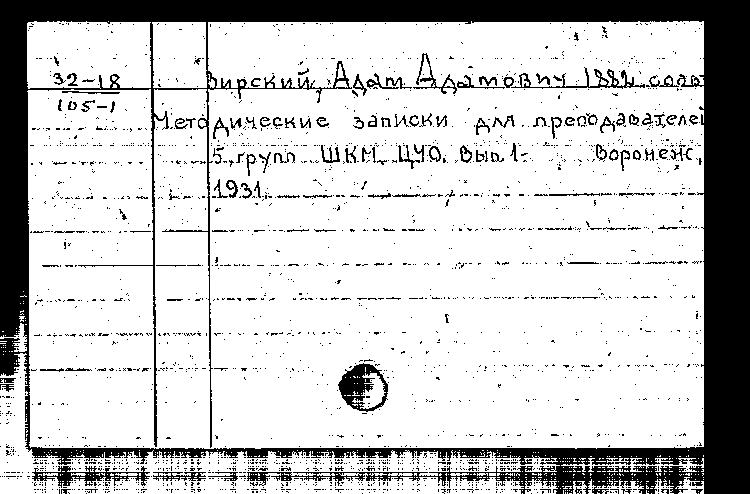 32-18
105-1
Зирский, Адам Адамович 1882
Методические записки для преподавателей
5 групп ШКМ. ЦЧО. Вып. 1- Воронеж,
1931.